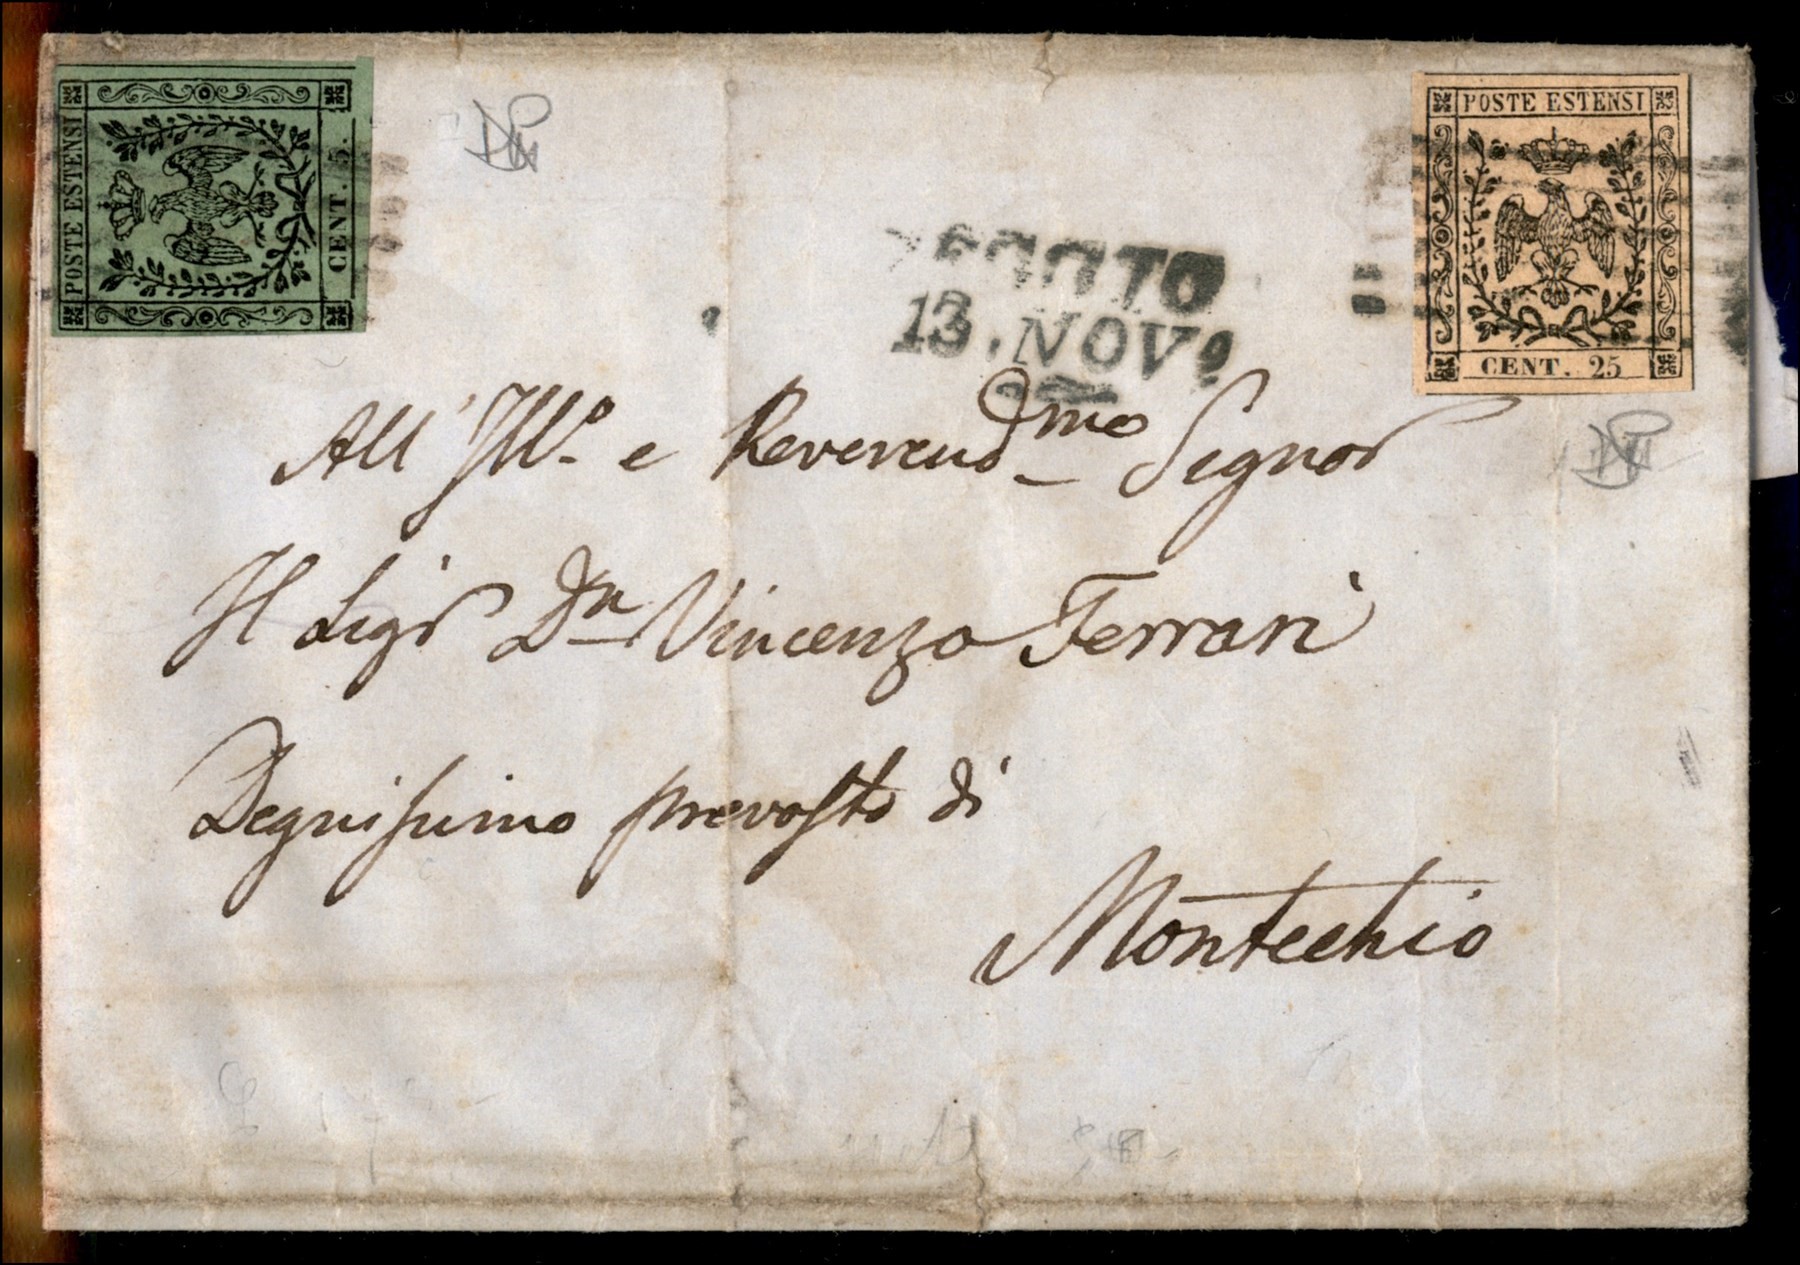 POSTE ESTENSI
CENT. 5.
POSTE ESTENSI
CENT. 25
13. NOVe
All' Illo. e Reverendmo Signor
Il Sigr Dn Vincenzo Ferrari
Degnissimo prevosto di
Montecchio